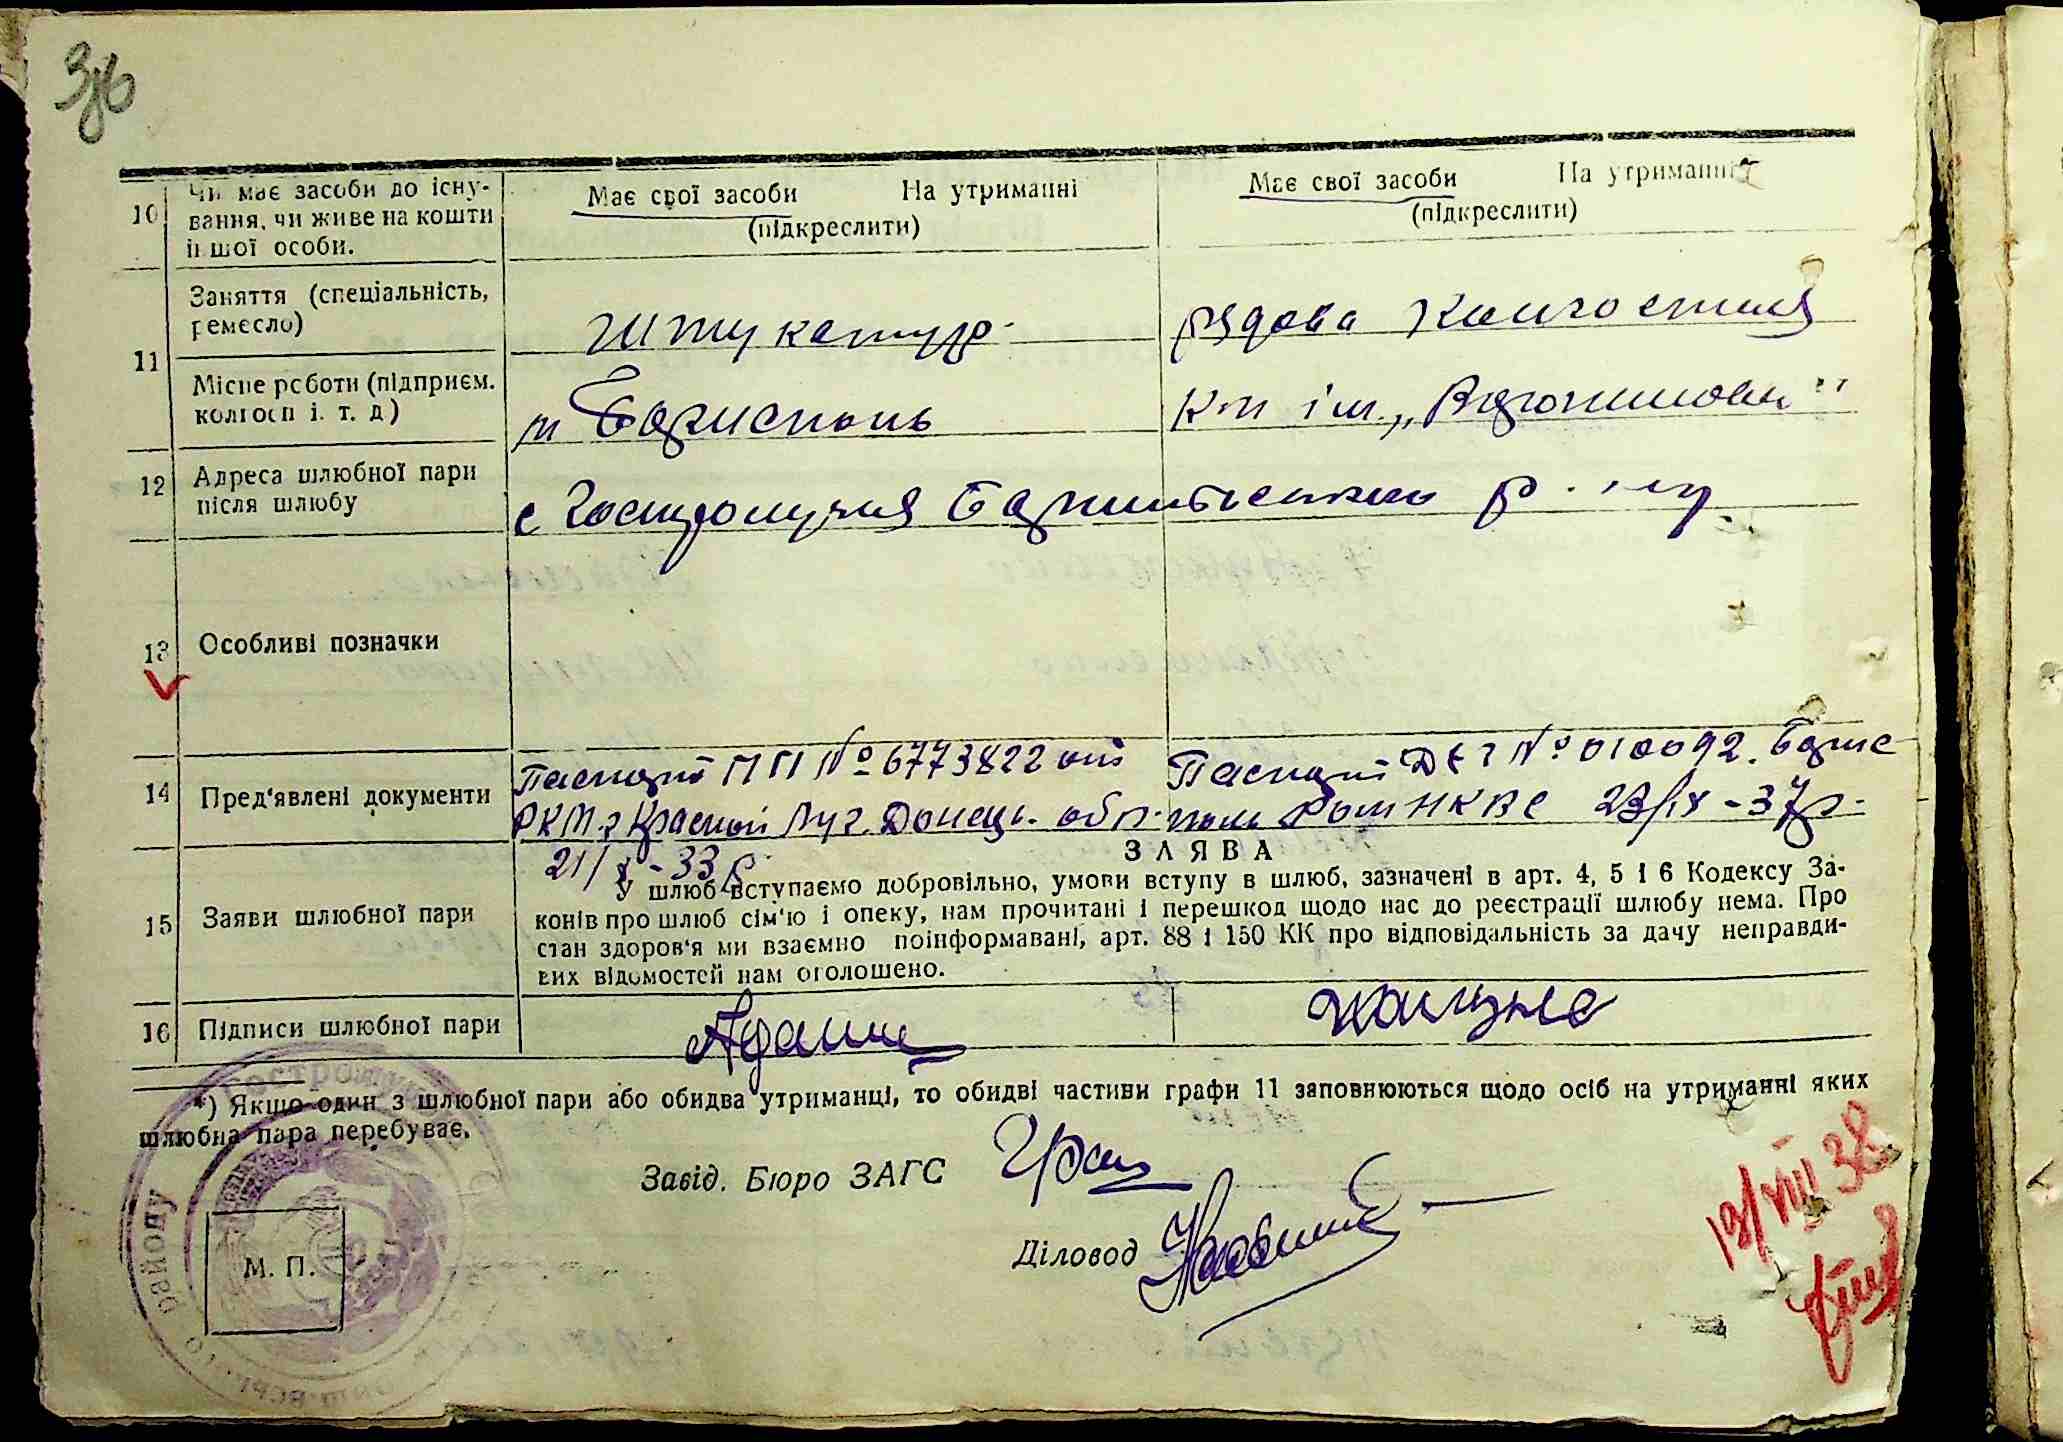 10 Чи має засоби до існу-
вання, чи живе на кошти
іншої особи.
Має свої засоби На утриманні
(підкреслити)
Має свої засоби На утриманні
(підкреслити)
11 Заняття (спеціальність,
ремесло)
Штукатур
рядова колгоспниця
Місце роботи (підприєм.
колгосп і. т. д)
м Бориспіль
к-п ім. „Ворошилова"
12 Адреса шлюбної пари
після шлюбу
с Гостролуччя Баришівського р-ну
13 Особливі позначки
14 Пред'явлені документи
Паспорт ПП № 6773822 от
РКМ г Красной Луч. Донець. обл.
21/X-33 р
Паспорт № 010092. Борис
поль РОМ НКВС 23/IX-37 р.
15 Заяви шлюбної пари
ЗАЯВА
У шлюб вступаємо добровільно, умови вступу в шлюб, зазначені в арт. 4, 5 і 6 Кодексу За-
конів про шлюб сім'ю і опеку, нам прочитані і перешкод щодо нас до реєстрації шлюбу нема. Про
стан здоров'я ми взаємно поінформавані, арт. 88 і 150 КК про відповідальність за дачу неправди-
вих відомостей нам оголошено.
16 Підписи шлюбної пари
*) Якщо один з шлюбної пари або обидва утриманці, то обидві частиви графи 11 заповнюються щодо осіб на утриманні яких
шлюбна пара перебуває.
Завід. Бюро ЗАГС
Діловод
М. П.
району
19/VIII 38